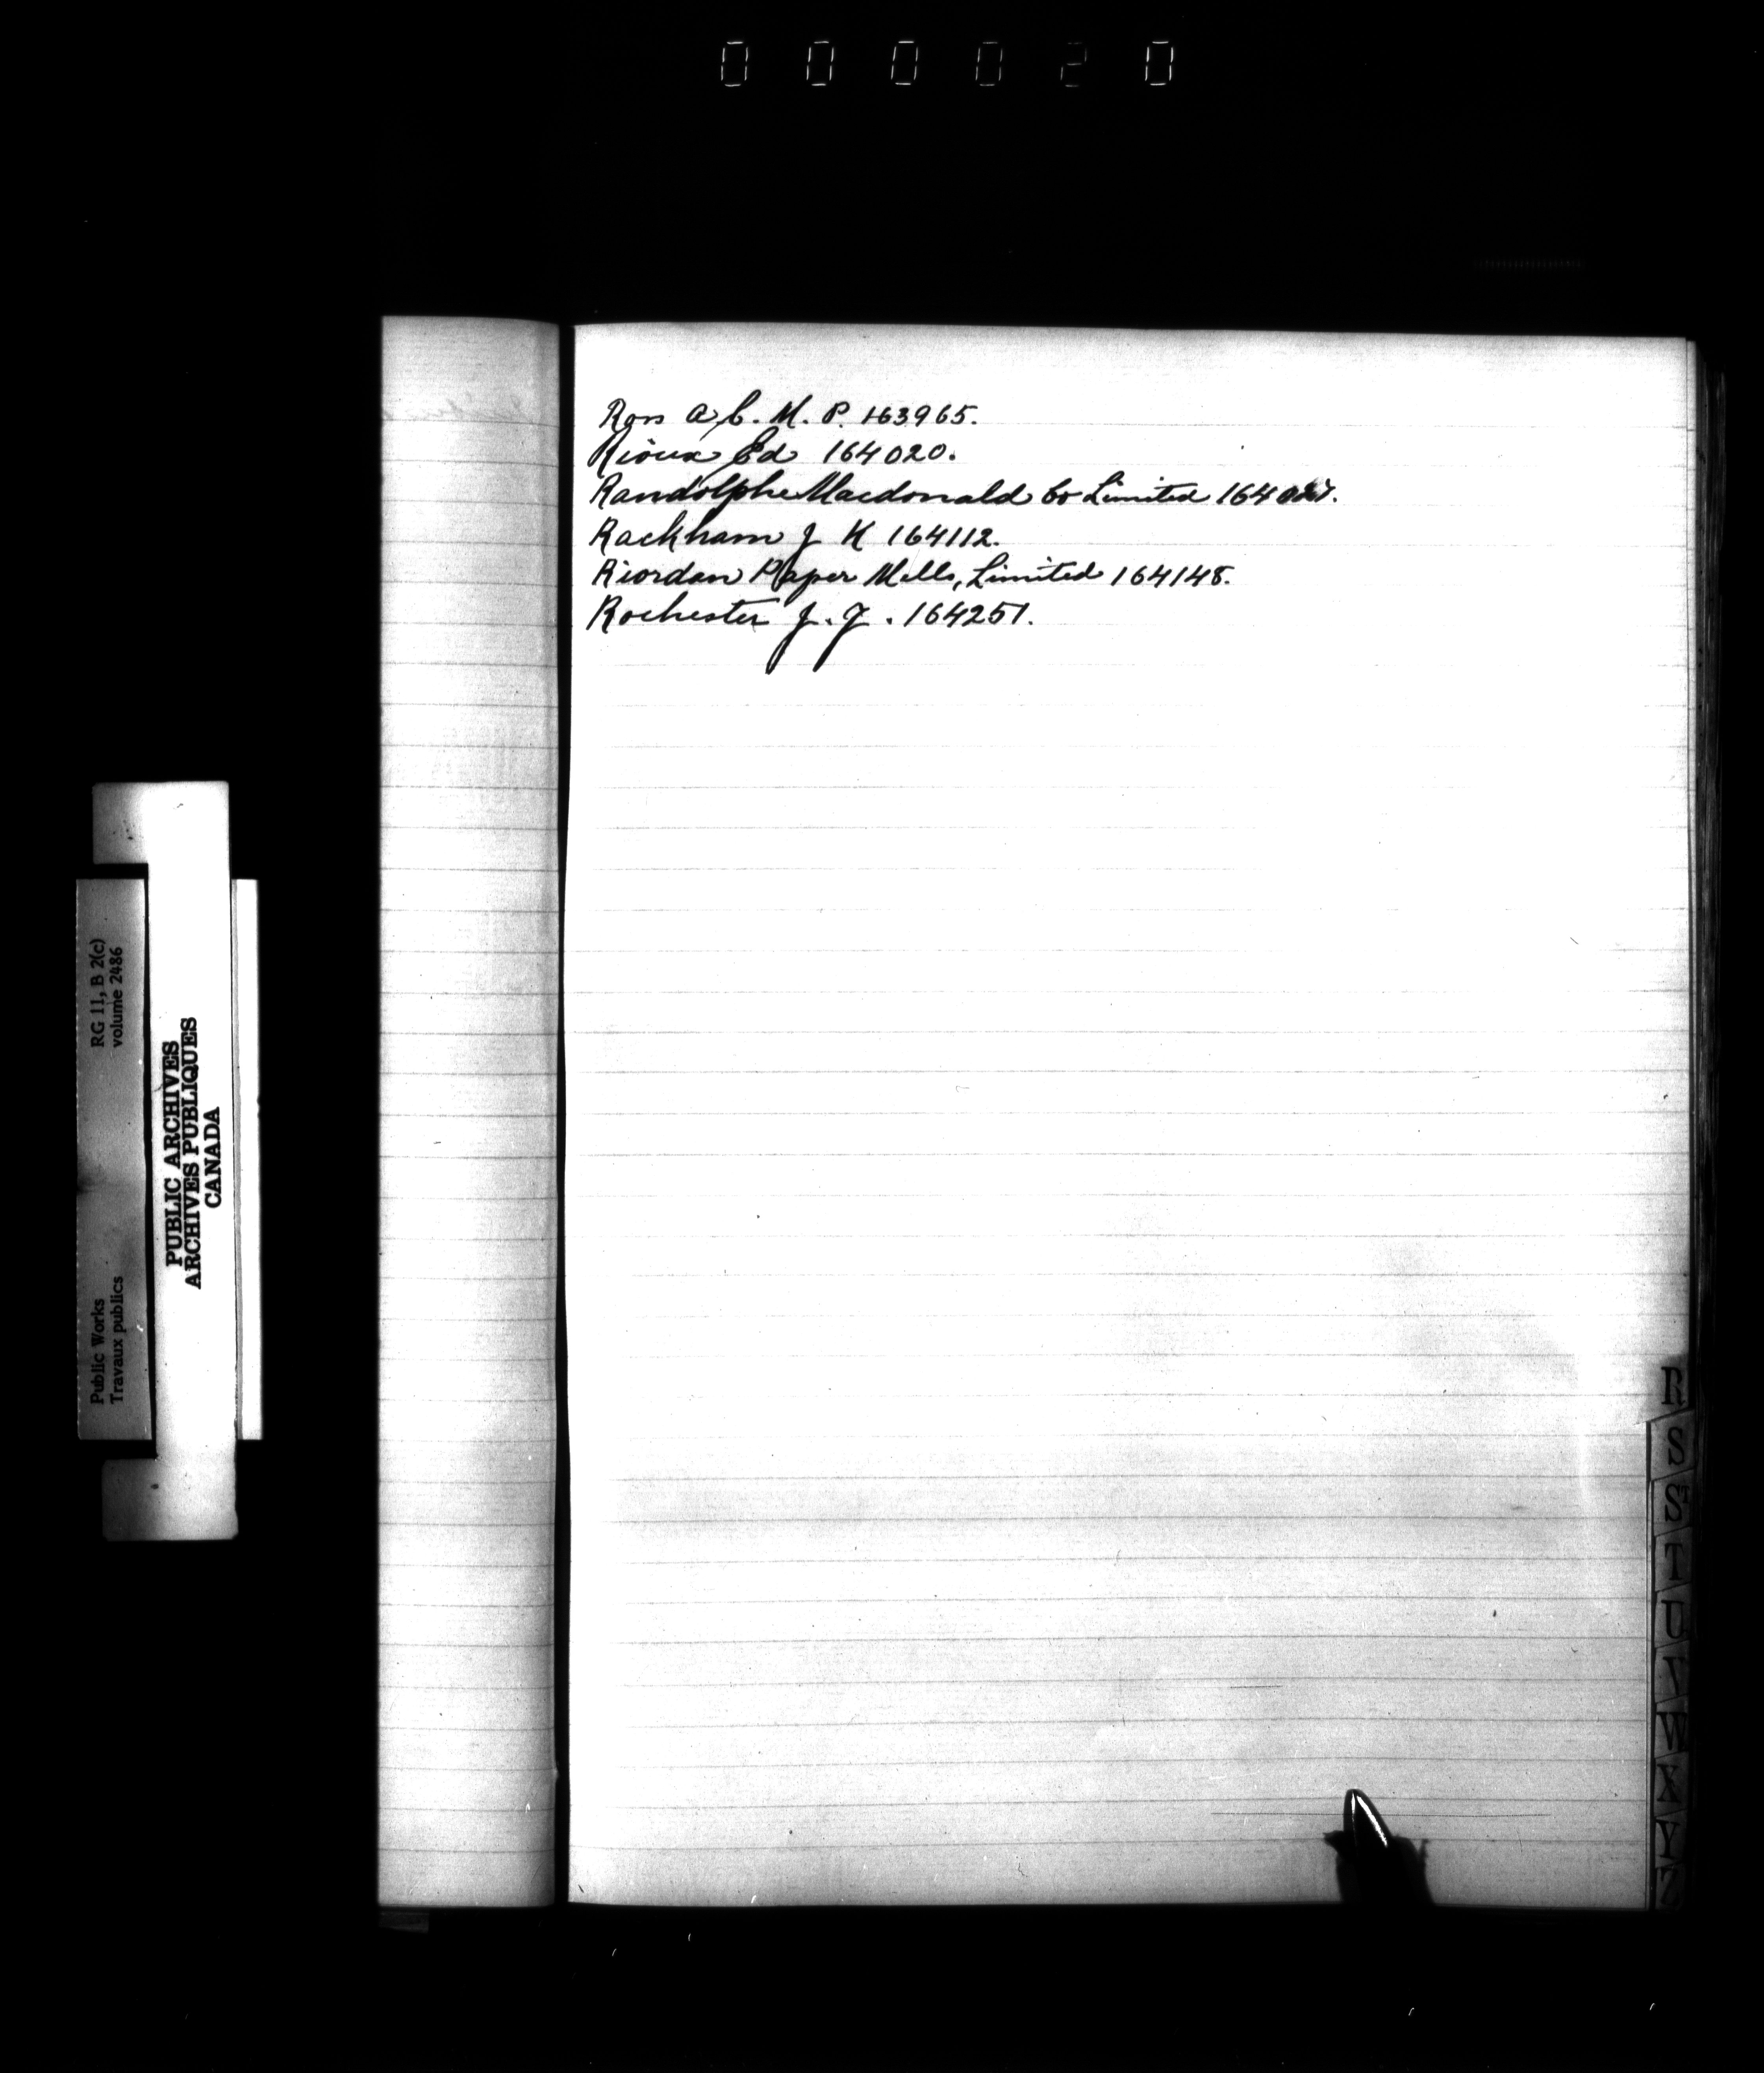 000020
Ross A. C. M. P. 163965.
Rioux Ed 164020.
Randolphe Macdonald Co Limited
Rackham J K 164112.
Riordan Paper Mills, Limited 164148.
Rochester J. J. 164251.
RG 11, B 2(c)
volume 2486
PUBLIC ARCHIVES
ARCHIVES PUBLIQUES
CANADA
Public Works
Travaux publics
R
S
St
T
U
V
W
X
Y